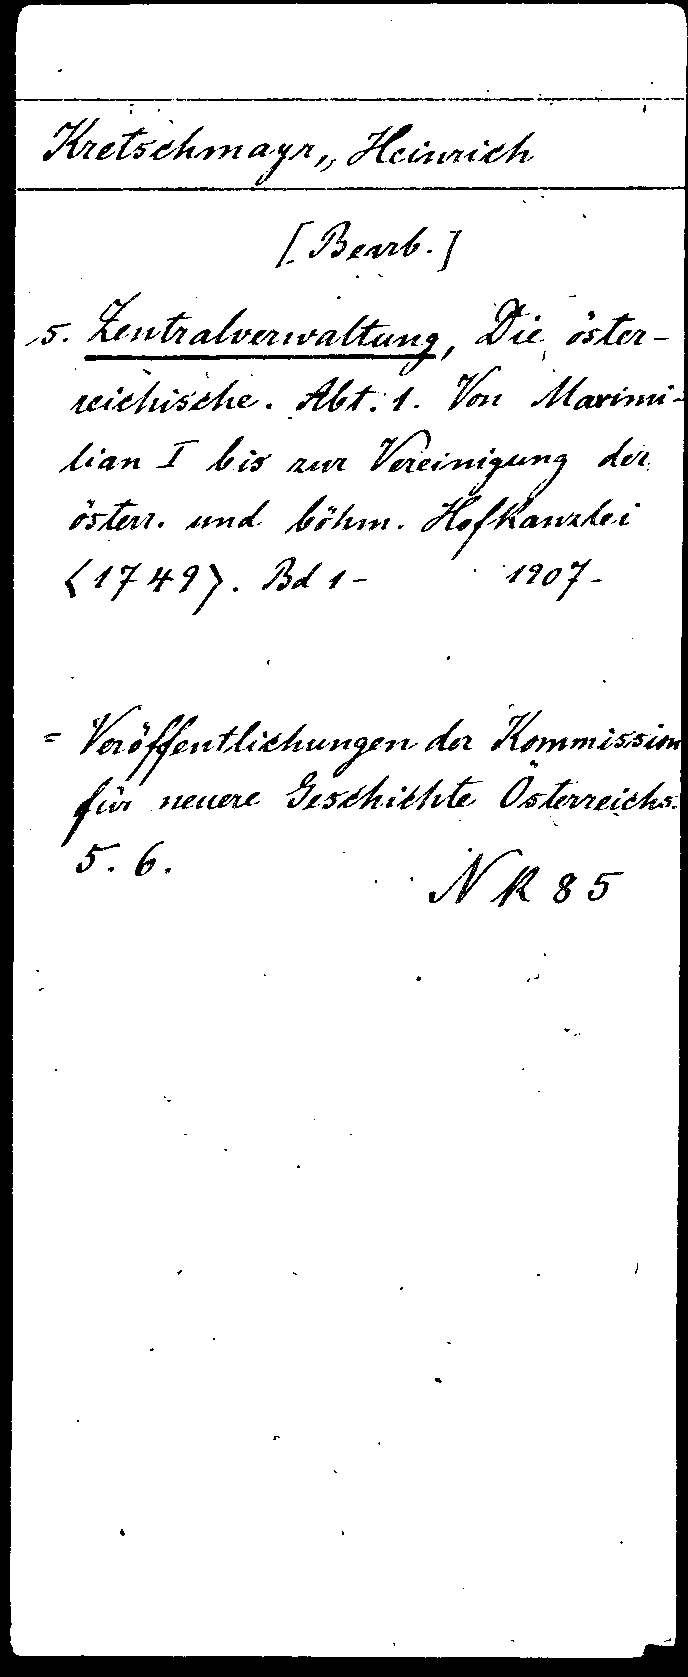 Kretschmayr, Heinrich
[Bearb.]
s. Zentralverwaltung, Die öster-
reichische. Abt. 1. Von Maximi-
lian I bis zur Vereinigung der
österr. und böhm. Hofkanzlei
<1749>. Bd 1- 1907-
= Veröffentlichungen der Kommission
für neuere Geschichte Österreichs.
5. 6.
NK 85